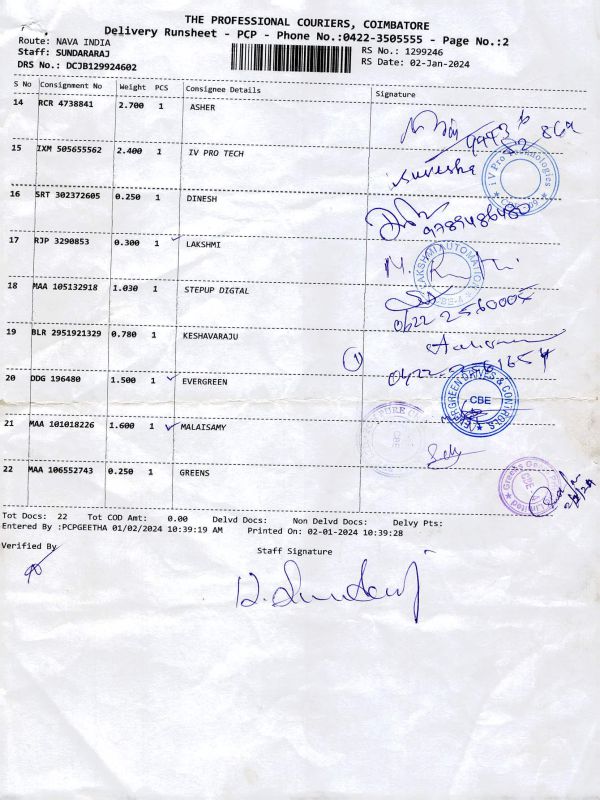 THE PROFESSIONAL COURIERS, COIMBATORE
Delivery Runsheet - PCP - Phone No.:0422-3505555 - Page No.:2
Route: NAVA INDIA
Staff: SUNDARARAJ
RS No.: 1299246
DRS No.: DCJB129924602
RS Date: 02-Jan-2024
S No Consignment No Weight PCS Consignee Details Signature
14 RCR 4738841 2.700 1 ASHER
15 IXM 505655562 2.400 1 IV PRO TECH
suresha
iV Pro Technologies
16 SRT 302372605 0.250 1 DINESH
9789486480
17 RJP 3290853 0.300 1 LAKSHMI
LAKSHMI AUTOMATION
18 MAA 105132918 1.030 1 STEPUP DIGTAL
0422-2560005
19 BLR 2951921329 0.780 1 KESHAVARAJU
1
20 DDG 196480 1.500 1 EVERGREEN
EVERGREEN DRIVES & CONTROLS
CBE
21 MAA 101018226 1.600 1 MALAISAMY
22 MAA 106552743 0.250 1 GREENS
Tot Docs: 22 Tot COD Amt: 0.00 Delvd Docs: Non Delvd Docs: Delvy Pts:
Entered By :PCPGEETHA 01/02/2024 10:39:19 AM Printed On: 02-01-2024 10:39:28
Verified By
Staff Signature